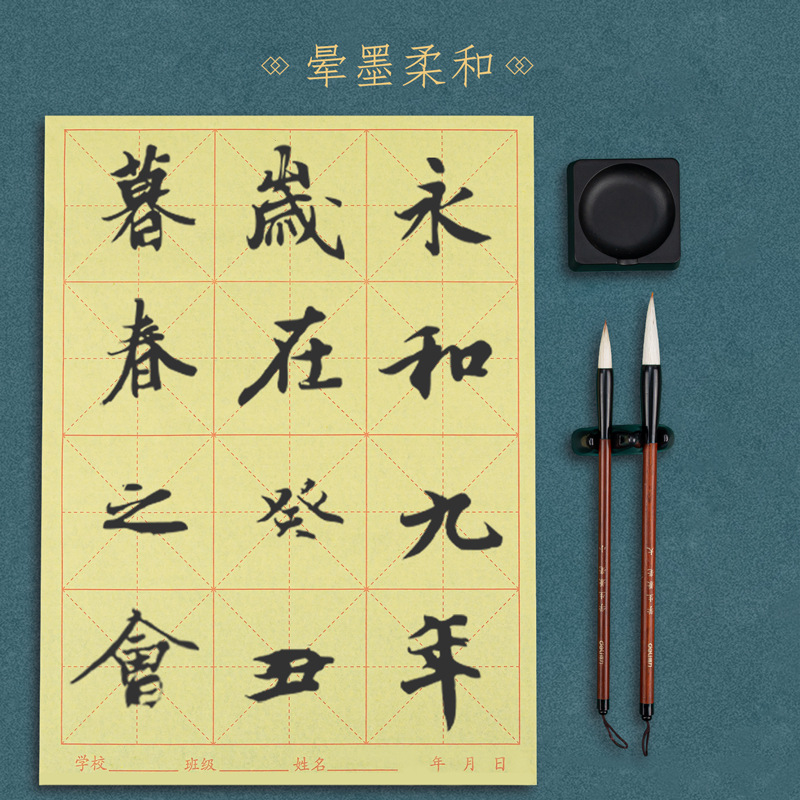 晕墨柔和
永和九年
歲在癸丑
暮春之會
学校 班级 姓名 年 月 日
deli
deli